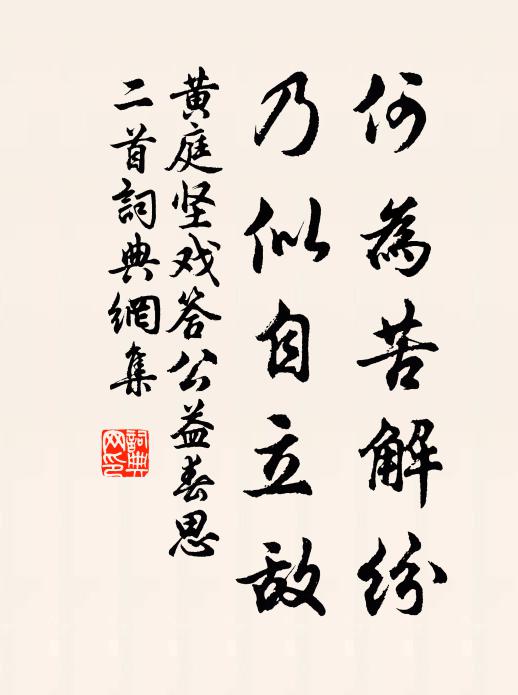 何為苦解紛
乃似自立敌
黄庭坚戏答公益春思
二首詞典網集
詞典网印